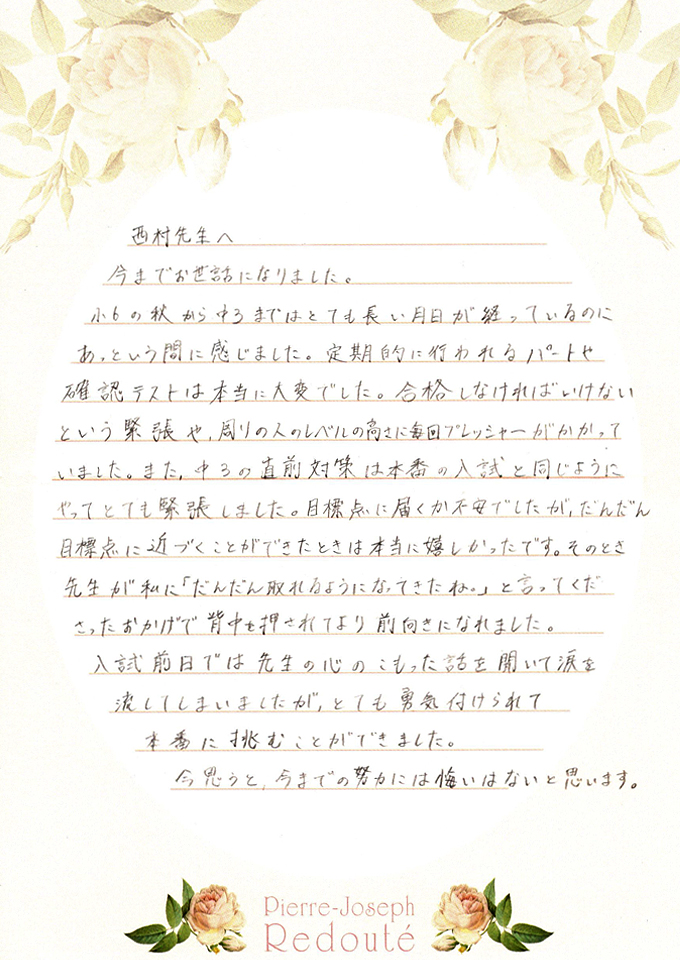 西村先生へ
今までお世話になりました。
小6の秋から中3まではとても長い月日が経っているのに
あっという間に感じました。定期的に行われるパートや
確認テストは本当に大変でした。合格しなければいけない
という緊張や,周りの人のレベルの高さに毎回プレッシャーがかかって
いました。また,中3の直前対策は本番の入試と同じように
やってとても緊張しました。目標点に届くか不安でしたが,だんだん
目標点に近づくことができたときは本当に嬉しかったです。そのとき
先生が私に「だんだん取れるようになってきたね。」と言ってくだ
さったおかげで背中を押されてより前向きになれました。
入試前日では先生の心のこもった話を聞いて涙を
流してしまいましたが,とても勇気付けられて
本番に挑むことができました。
今思うと,今までの努力には悔いはないと思います。
Pierre-Joseph
Redouté